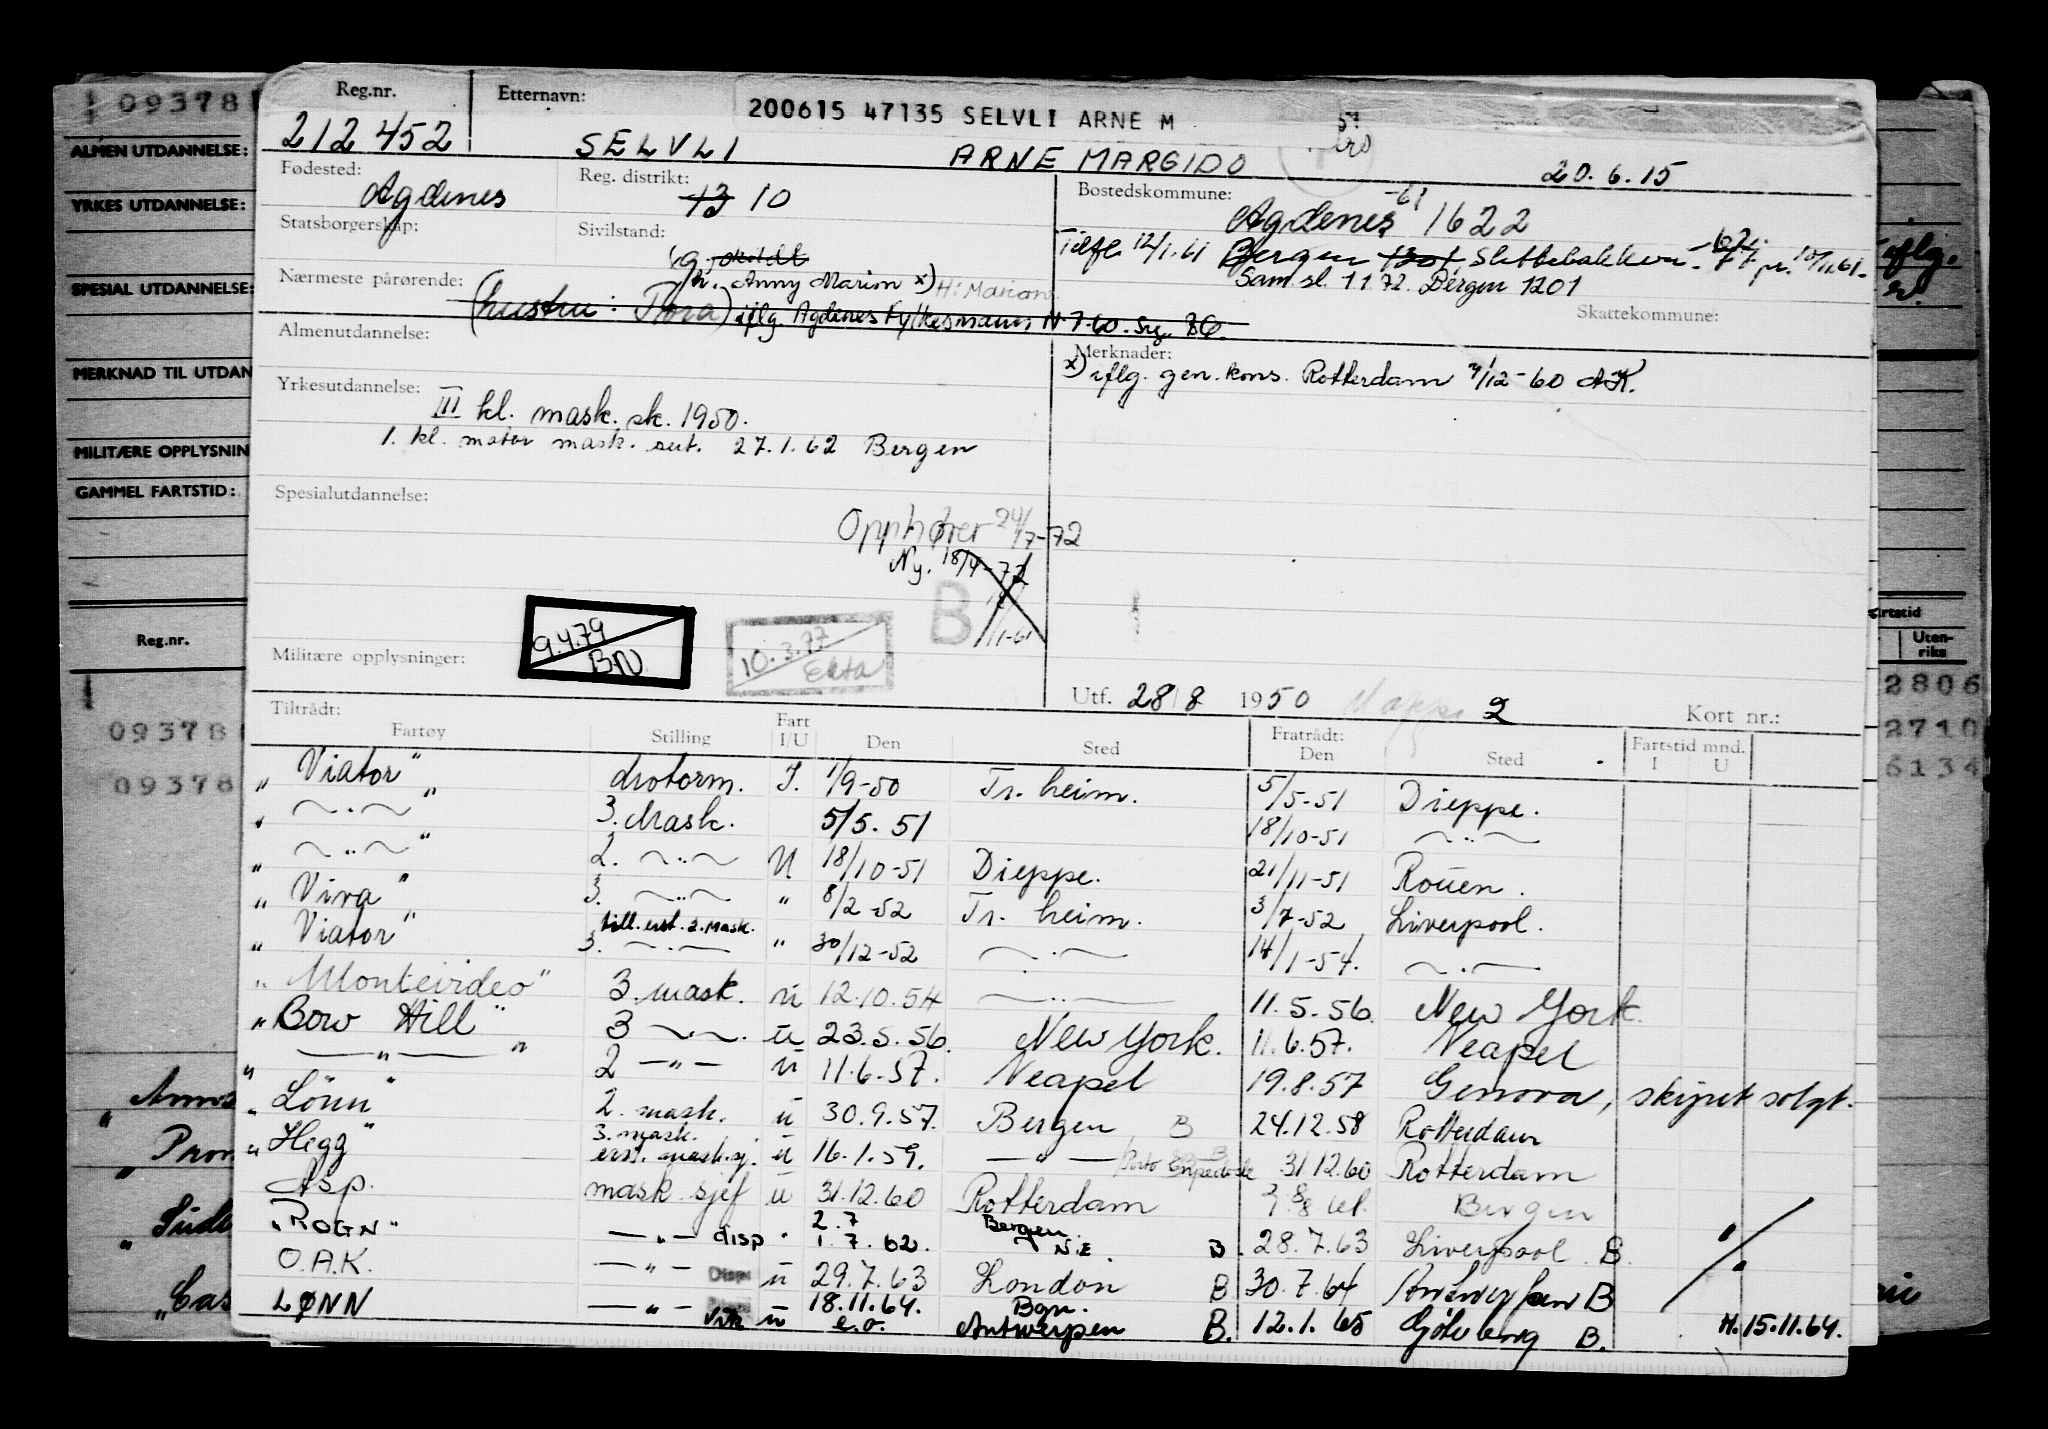 09378
Reg.nr.
Etternavn:
200615 47135 SELVLI ARNE M
212 452
SELVLI
ARNE MARGIDO
20.6.15
ALMEN UTDANNELSE:
YRKES UTDANNELSE:
SPESIAL UTDANNELSE:
MERKNAD TIL UTDAN
MILITÆRE OPPLYSNIN
GAMMEL FARTSTID:
Reg.nr.
09378
09378
Fødested:
Agdenes
Reg. distrikt:
13 10
Bostedskommune:
-61
Agdenes 1622
Statsborgerskap:
Sivilstand:
g. skilt
Tilfl. 12/1.61 Bergen 1301 Slettebakken
Sam.sl. 1 1 72. Bergen 1201
Nærmeste pårørende:
h. Anny Marion x) H: Marion
(hustru: Tora) iflg. Agdenes Fylkesmann
Skattekommune:
Almenutdannelse:
Merknader:
x) iflg. gen.kons. Rotterdam /12-60 AK.
Yrkesutdannelse:
III kl. mask. sk. 1950.
1. kl. motor mask. sert. 27.1.62 Bergen
Spesialutdannelse:
Opphører 24/7-72
Ny. 18/4-72
B
11-61
9.4.79
BN
10.3.77
Ekta
Militære opplysninger:
Utf. 28 8 1950 Mappe 2
Kort nr.:
Tiltrådt:
Fartøy Stilling Fart I/U Den Sted Fratrådt: Den Sted Fartstid mnd. I U
„Viator" Motorm. I. 1/9-50 Tr.heim. 5/5-51 Dieppe.
„ ~·~ " 3. Mask. 5/5.51 18/10-51 ~··~
„ ~··~ " 2. ~··~ U 18/10-51 Dieppe. 21/11-51 Rouen.
„Viva" 3. ~··~ " 8/2-52 Tr.heim. 3/7-52 Liverpool.
„Viator" till. erst. 2. mask. 3. ~·~ " 30/12-52 ~·~ 14/1-54. ~·~
„Montevideo" 3. mask. u 12.10.54 ~··~ 11.5.56. New York.
„Bow Hill" 3 ~··~ u 23.5.56. New York. 11.6.57. Neapel
„ —"— " 2 —"— u 11.6.57. Neapel 19.8.57 Genova, skipet solgt.
„Lönn" 2. mask. u 30.9.57. Bergen B 24.12.58 Rotterdam
„Hegg" 3. mask. erst. mask.sj. u 16.1.59. —"— Porto Empedocle 31.12.60 Rotterdam
Asp. mask sjef u 31.12.60 Rotterdam 61. Bergen
„ROGN" —"— disp " 2.7 1.7.62. Bergen N.E B. 28.7.63 Liverpool B. "
O.A.K. —"— Disp. u 29.7.63 London B 30.7.64 Antwerpen B "
LØNN —"— u 18.11.64. e.o. Bgn. Antwerpen B. 12.1.65 Gøteborg B. H.15.11.64.
iflg.
artstid
Uten-
riks
2806
2710
6134